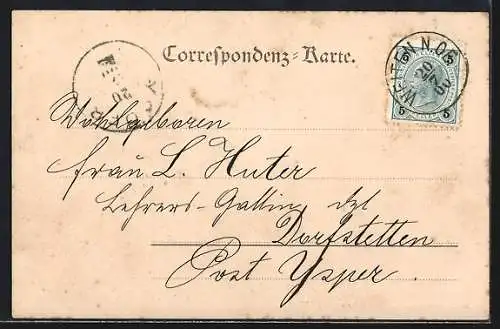 Correspondenz-Karte.
5 5
WEITEN N.OE.
20
5 5
Wohlgeboren
Frau L. Huter
Lehrers-Gattin
Dorfstetten
Post Ysper.